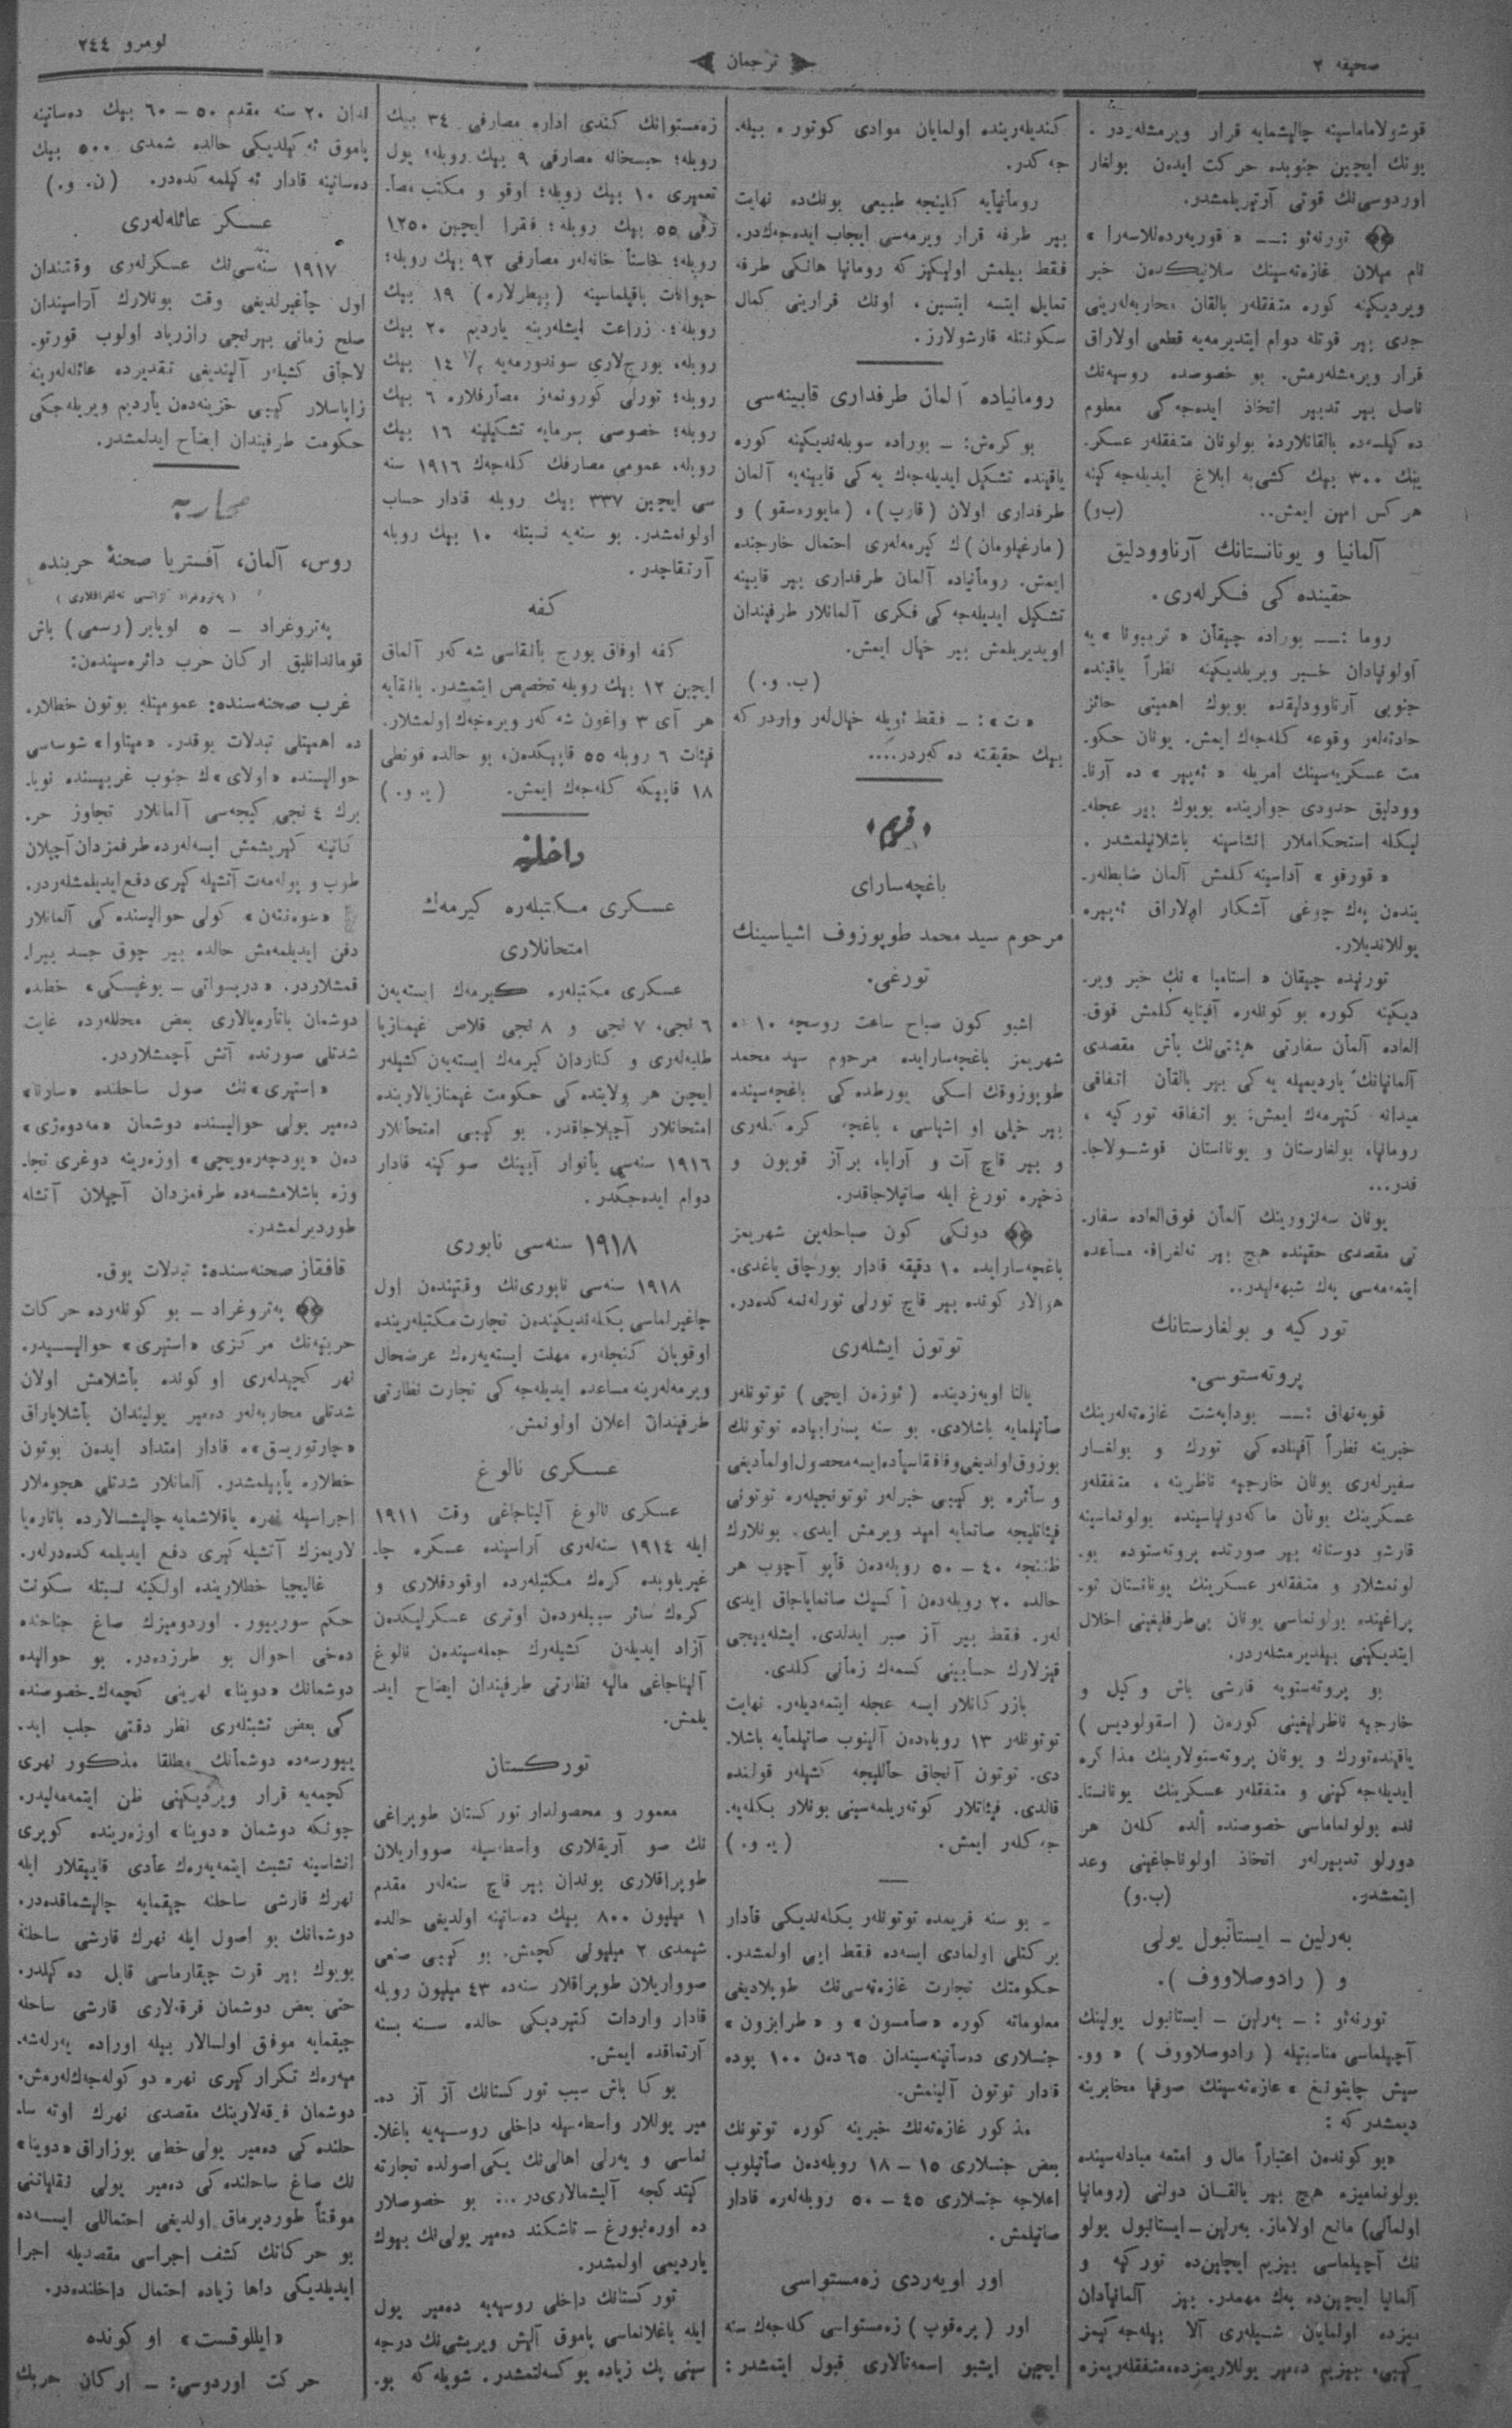 صحیفه ۲
ترجمان
لومرو ۲٤٤
قوشولاماماسینه چالیشمایه قرار ویرمشلەردر .
بونك ایچین جنوبده حرکت ایدەن بولغار
اوردوسی‌نك قوتی آرتیریلمشدر.
تورنەئو :— « قوریەردەللاسەرا »
نام میلان غازەتەسینك سلانیك‌دەن خبر
ویردیکینه کوره متفقلەر بالقان محاربەلەرینی
جدی بیر قوتله دوام ایتدیرمەیه قطعی اولاراق
قرار ویرمشلەرمش. بو خصوصده روسیەنك
ناصل بیر تدبیر اتخاذ ایدەجەکی معلوم
دەکیلسەده بالقانلارده بولونان متفقلەر عسکر-
ینك ۳۰۰ بیك کشی‌یه ابلاغ ایدیلەجەکینه
هرکس امین ایمش.. (ب‌و)
آلمانیا و یونانستانك آرناوودلیق
حقینده کی فکرلەری.
روما :— بوراده چیقان « تریبونا » یه
آولونیادان خبر ویریلدیکینه نظراً یاقینده
جنوبی آرناوودلیقده بویوك اهمیتی حائز
حادثەلەر وقوعه کلەجەك ایمش. یونان حکو-
مت عسکریەسینك امریله « ئەپیر » ده آرنا-
وودلیق حدودی جوارینده بویوك بیر عجلە-
لیکله استحکاملار انشاسینه باشلانیلمشدر .
« قورفو » آداسینه کلمش آلمان ضابطلەر-
یندەن پەك چوغی آشکار اولاراق ئەپیره
یوللاندیلار.
تورنیده چیقان « استامپا » نك خبر ویر-
دیکینه کوره بو کونلەره آفینایه کلمش فوق-
العاده آلمان سفارتی هیئتی‌نك باش مقصدی
آلمانیانك یاردیمیله یەکی بیر بالقان اتفاقی
میدانه کتیرمەك ایمش: بو اتفاقه تورکیه ،
رومانیا، بولغارستان و یونانستان قوشولاجا-
قدر...
یونان سەنزورینك آلمان فوق‌العاده سفار-
تی مقصدی حقینده هیچ بیر تەلغرافه مساعده
ایتمەمەسی پەك شبهەلیدر..
تورکیه و بولغارستانك
پروتەستوسی.
قوپەنهاق :— بوداپەشت غازەتەلەرینك
خبرینه نظراً آفیناده‌کی تورك و بولغار
سفیرلەری یونان خارجیه ناظرینه ، متفقلەر
عسکرینك یونان ماکەدونیاسینده بولونماسینه
قارشو دوستانه بیر صورتده پروتەستوده بو-
لونمشلار و متفقلەر عسکرینك یونانستان تو-
پراغینده بولونماسی یونان بی‌طرفلیغینی اخلال
ایتدیکینی بیلدیرمشلەردر.
بو پروتەستویه قارشی باش وکیل و
خارجیه ناظرلیغینی کورەن ( اسقولودیس )
یاقیندەتورك و یونان پروتەستولارینك مذاکره
ایدیلەجەکینی و متفقلەر عسکرینك یونانستا-
نده بولونماماسی خصوصنده ألده کلەن هر
دورلو تدبیرلەر اتخاذ اولوناجاغینی وعد
ایتمشدر. (ب‌.و)
بەرلین - ایستانبول یولی
و ( رادوصلاووف ).
تورنەئو : - بەرلین - ایستانبول یولینك
آچیلماسی مناسبتیله ( رادوصلاووف ) « وو-
سیش چایتونغ » غازەتەسینك صوفیا مخابرینه
دیمشدر که :
«بو کوندەن اعتباراً مال و امتعه مبادلەسینده
بولونمامیزه هیچ بیر بالقان دولتی (رومانیا
اولمالی) مانع اولاماز. بەرلین - ایستانبول یولو
نك آچیلماسی بیزیم ایچین‌ده تورکیه و
آلمانیا ایچین‌ده پەك مهمدر. بیز آلمانیادان
بیزده اولمایان شیلەری آلا بیلەجەکیمز
کیبی، بیزیم دەمیر یوللاریمزده،متفقلەریمزه
کندیلەرینده اولمایان موادی کوتوره بیلە-
جەکدر.
رومانیایه کلینجه طبیعی بونك‌ده نهایت
بیر طرفه قرار ویرمەسی ایجاب ایدەجەك‌در.
فقط بیلمش اولیکیز که رومانیا هانکی طرفه
تمایل ایتسه ایتسین ، اونك قرارینی کمال
سکونتله قارشولارز.
رومانیاده آلمان طرفداری قابینەسی
بوکرەش: - بوراده سویلەندیکینه کوره
یاقینده تشکیل ایدیلەجەك یەکی قابینەیه آلمان
طرفداری اولان ( قارپ )، ( مایورەسقو ) و
( مارغیلومان )ك کیرمەلەری احتمال خارجنده
ایمش. رومانیاده آلمان طرفداری بیر قابینه
تشکیل ایدیلەجەکی فکری آلمانلار طرفیندان
اویدیریلمش بیر خیال ایمش.
(ب. و.)
«ت» : - فقط ئویله خیال‌لەر واردر که
بیك حقیقته دەکەردر....
قریم
باغچەسارای
مرحوم سید محمد طوپوزوف اشیاسینك
تورغی.
اشبو کون صباح ساعت روسچه ۱۰ ده
شهریمز باغچەسارایده مرحوم سید محمد
طوپوزوفك اسکی یورطده‌کی باغچەسینده
بیر خیلی او اشیاسی ، باغچه کرەکلەری
و بیر قاچ آت و آرابا، برآز قویون و
ذخیره تورغ ایله صاتیلاجاقدر.
دونکی کون صباحلەین شهریمز
باغچەسارایده ۱۰ دقیقه قادار بورچاق یاغدی.
هوالار کونده بیر قاچ تورلی تورلەنمەکدەدر.
توتون ایشلەری
یالتا اویەزدینده (ئوزەن ایچی) توتونلەر
صاتیلمایه باشلادی. بو سنه بسارابیاده توتونك
بوزوق‌اولدیغی‌وقافقاسیاده‌ایسەمحصول‌اولمادیغی
و سائره بو کیبی خبرلەر توتونجیلەره توتونی
فیئاتلیجه صاتمایه امید ویرمش ایدی. بونلارك
ظننجه ٤۰ - ۵۰ روبلەدەن قاپو آچوب هر
حالده ۲۰ روبلەدەن أکسیك صاتمایاجاق ایدی
لەر. فقط بیر آز صبر ایدلدی. ایشلەییجی
قیزلارك حسابینی کسمەك زمانی کلدی.
بازرکانلار ایسه عجله ایتمەدیلەر. نهایت
توتونلەر ۱۳ روبلەدەن آلینوب صاتیلمایه باشلا-
دی. توتون آنجاق حاللیجه کشیلەر قولنده
قالدی. فیئاتلار کوتەریلمەسینی بونلار بکلەیه-
جەکلەر ایمش. (ی. و.)
- بو سنه قریمده توتونلەر بکلەندیکی قادار
برکتلی اولمادی ایسەده فقط ایی اولمشدر.
حکومتك تجارت غازەتەسی‌نك طوپلادیغی
معلوماته کوره «صامسون» و «طرابزون»
جنسلاری دەساتینەسیندان ٦۵دەن ۱۰۰ پوده
قادار توتون آلینمش.
مذکور غازەتەنك خبرینه کوره توتونك
بعض جنسلاری ۱۵ - ۱۸ روبلەدەن صاتیلوب
اعلاجه جنسلاری ٤۵ - ۵۰ روبلەلەره قادار
صاتیلمش.
اور اویەزدی زەمستواسی
اور ( پرەقوپ ) زەمستواسی کلەجەك سنه
ایچین ایشبو اسمەتالاری قبول ایتمشدر :
زەمستوانك کندی اداره مصارفی ۳٤ بیك
روبله؛ حبسخانه مصارفی ۹ بیك روبله؛ یول
تعمیری ۱۰ بیك روبله؛ اوقو و مکتب مصا-
رفی ۵۵ بیك روبله؛ فقرا ایچین ۱۲۵۰
روبله؛ خاستا خانەلەر مصارفی ۹۲ بیك روبله؛
حیوانات باقیلماسینه (بیطرلاره) ۱۹ بیك
روبله؛ زراعت ایشلەرینه یاردیم ۲۰ بیك
روبله، بورج‌لاری سوندورمەیه ۱/۲ ۱٤ بیك
روبله؛ تورلی کورونمەز مصارفلاره ٦ بیك
روبله؛ خصوصی سرمایه تشکیلینه ۱٦ بیك
روبله، عمومی مصارفك کلەجەك ۱۹۱٦ سنه
سی ایچین ۳۳۷ بیك روبله قادار حساب
اولونمشدر. بو سنەیه نسبتله ۱۰ بیك روبله
آرتقاچدر.
کفه
کفه اوفاق بورج بانقاسی شەکەر آلماق
ایچین ۱۲ بیك روبله تخصیص ایتمشدر. بانقایه
هر آی ۳ واغون شەکەر ویرەجەك اولمشلار.
فیئات ٦ روبله ۵۵ قاپیکدەن، بو حالده فونطی
۱۸ قاپیکه کلەجەك ایمش. (ی. و.)
داخلیه
عسکری مکتبلەره کیرمەك
امتحانلاری
عسکری مکتبلەره کیرمەك ایستەیەن
٦ نجی، ۷ نجی و ۸ نجی قلاص غیمنازیا
طلبەلەری و کناردان کیرمەك ایستەیەن کشیلەر
ایچین هر ولایتده‌کی حکومت غیمنازیالارینده
امتحانلار آچیلاجاقدر. بو کیبی امتحانلار
۱۹۱٦ سنەسی یانوار آیینك صوکینه قادار
دوام ایدەجکدر.
۱۹۱۸ سنەسی نابوری
۱۹۱۸ سنەسی نابوری‌نك وقتیندەن اول
چاغیرلماسی بکلەندیکیندەن تجارت مکتبلەرینده
اوقویان کنجلەره مهلت ایستەیەرەك عرضحال
ویرمەلەرینه مساعده ایدیلەجەکی تجارت نظارتی
طرفیندان اعلان اولونمش.
عسکری نالوغ
عسکری نالوغ آلیناجاغی وقت ۱۹۱۱
ایله ۱۹۱٤ سنەلەری آراسینده عسکره چا-
غیریلوبده کرەك مکتبلەرده اوقودقلاری و
کرەك سائر سببلەردەن اوتری عسکرلیکدەن
آزاد ایدیلەن کشیلەرك جملەسیندەن نالوغ
آلیناجاغی مالیه نظارتی طرفیندان ایضاح اید-
یلمش.
تورکستان
معمور و محصولدار تورکستان طوپراغی
نك صو آریقلاری واسطەسیله صوواریلان
طوپراقلاری بوندان بیر قاچ سنەلەر مقدم
۱ میلیون ۸۰۰ بیك دەساتینه اولدیغی حالده
شیمدی ۲ میلیونی کچمش. بو کیبی صنعی
صوواریلان طوپراقلار سنەده ٤۳ میلیون روبله
قادار واردات کتیردیکی حالده سنه بسنه
آرتماقده ایمش.
بوکا باش سبب تورکستانك آز آز دە-
میر یوللار واسطەسیله داخلی روسیەیه باغلا-
نماسی و یەرلی اهالی‌نك یکی اصولده تجارته
کیتدکجه آلیشمالاری‌در... بو خصوصلار
ده اورەنبورغ - تاشکند دەمیر یولی‌نك بیوك
یاردیمی اولمشدر.
تورکستانك داخلی روسیەیه دەمیر یول
ایله باغلانماسی پاموق آلیش ویریشی‌نك درجه
سینی پك زیاده یوکسەلتمشدر. شویله که بو-
ندان ۲۰ سنه مقدم ۵۰ - ٦۰ بیك دەساتینه
پاموق ئەکیلدیکی حالده شمدی ۵۰۰ بیك
دەساتینه قادار ئەکیلمەکدەدر. (ن. و.)
عسکر عائلەلەری
۱۹۱۷ سنەسی‌نك عسکرلەری وقتندان
اول چاغیرلدیغی وقت بونلارك آراسیندان
صلح زمانی بیرنجی رازریاد اولوب قورتو-
لاجاق کشیلەر آلیندیغی تقدیرده عائلەلەرینه
زاپاسلار کیبی خزینەدەن یاردیم ویریلەجکی
حکومت طرفیندان ایضاح ایدلمشدر.
محاربه
روس، آلمان، آفستریا صحنهٔ حربنده
(پەتروغراد آژانسی تەلغرافلاری)
پەتروغراد - ۵ نویابر (رسمی) باش
قوماندانلیق ارکان حرب دائرەسیندەن:
غرب صحنەسنده: عمومیتله بوتون خطلار-
ده اهمیتلی تبدلات یوقدر. «میتاوا» شوسەسی
حوالیسنده «اولای»ك جنوب غربیسنده نویا-
برك ٤ نجی کیجەسی آلمانلار تجاوز حر-
کاتینه کیریشمش ایسەلەرده طرفمزدان آچیلان
طوب و پولەمەت آتشیله کیری دفع ایدیلمشلەردر.
«سوەنتەن» کولی حوالیسنده‌کی آلمانلار
دفن ایدیلمەمش حالده بیر چوق جسد بیرا-
قمشلاردر. «دریسواتی - بوغینسکی» خطده
دوشمان باتارەیالاری بعض محللەرده غایت
شدتلی صورتده آتش آچمشلاردر.
«استیری»نك صول ساحلنده «سارنا»
دەمیر یولی حوالیسنده دوشمان «مەدوەژی»
دەن «پودچەرەویچی» اوزەرینه دوغری تجا-
وزه باشلامشسەده طرفمزدان آچیلان آتشله
طوردیرلمشدر.
قافقاز صحنەسنده: تبدلات یوق.
پەتروغراد - بو کونلەرده حرکات
حربیەنك مرکزی «استیری» حوالیسیدر.
نهر کچیدلەری اوکونده باشلامش اولان
شدتلی محاربەلەر دەمیر یولیندان باشلایاراق
«چارتوریسق»، قادار امتداد ایدەن بوتون
خطلاره یاییلمشدر. آلمانلار شدتلی هجوملار
اجراسیله نهره یاقلاشمایه چالیشسالارده باتارەیا
لاریمزك آتشیله کیری دفع ایدیلمەکدەدرلەر.
غالیچیا خطلارینده اولکینه نسبتله سکونت
حکم سورییور. اوردومیزك صاغ جناحنده
دەخی احوال بو طرزدەدر. بو حوالیده
دوشمانك «دوینا» نهرینی کچمەك خصوصنده
کی بعض تشبثلەری نظر دقتی جلب اید-
ییورسەده دوشمانك مطلقا مذکور نهری
کچمەیه قرار ویردیکینی ظن ایتمەمەلیدر.
چونکه دوشمان «دوینا» اوزەرینده کوپری
انشاسینه تشبث ایتمەیەرەك عادی قاییقلار ایله
نهرك قارشی ساحلنه چیقمایه چالیشماقدەدر.
دوشمانك بو اصول ایله نهرك قارشی ساحلنه
بویوك بیر قوت چیقارماسی قابل دەکیلدر.
حتی بعض دوشمان فرقەلاری قارشی ساحله
چیقمایه موفق اولسالار بیله اوراده یەرلەشە-
میەرەك تکرار کیری نهره دوکولەجەك‌لەرمش.
دوشمان فرقەلارینك مقصدی نهرك اوته سا-
حلنده‌کی دەمیر یولی خطی بوزاراق «دوینا»
نك صاغ ساحلنده‌کی دەمیر یولی نقلیاتنی
موقتاً طوردیرماق اولدیغی احتماللی ایسەده
بو حرکاتك کشف اجراسی مقصدیله اجرا
ایدیلدیکی داها زیاده احتمال داخلندەدر.
«ایللوقست» اوکونده
حرکت اوردوسی: - ارکان حربك